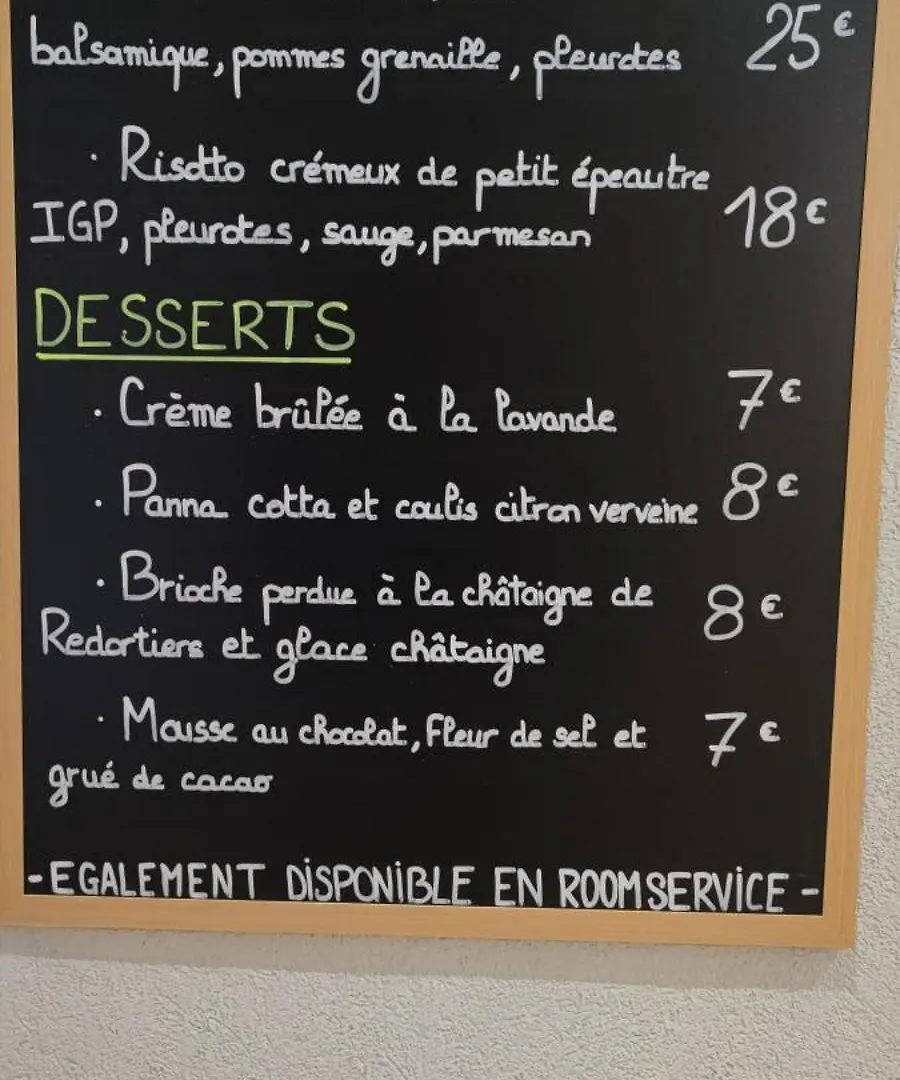 balsamique, pommes grenaille, pleurotes 25€
· Risotto crémeux de petit épeautre
IGP, pleurotes, sauge, parmesan 18€
DESSERTS
· Crème brûlée à la lavande 7€
· Panna cotta et coulis citron verveine 8€
· Brioche perdue à la châtaigne de
Redortiers et glace châtaigne 8€
· Mousse au chocolat, fleur de sel et 7€
grué de cacao
- EGALEMENT DISPONIBLE EN ROOMSERVICE -